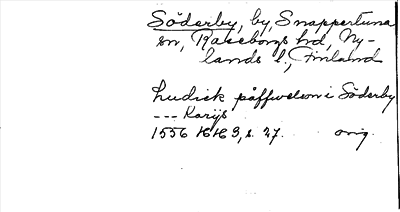 Söderby, by, Snappertuna
sn, Raseborgs hd, Ny-
lands l., Finland
Ludick påffwelsson i Söderby
--- Karijs
1556 HH 3, s. 27. orig.